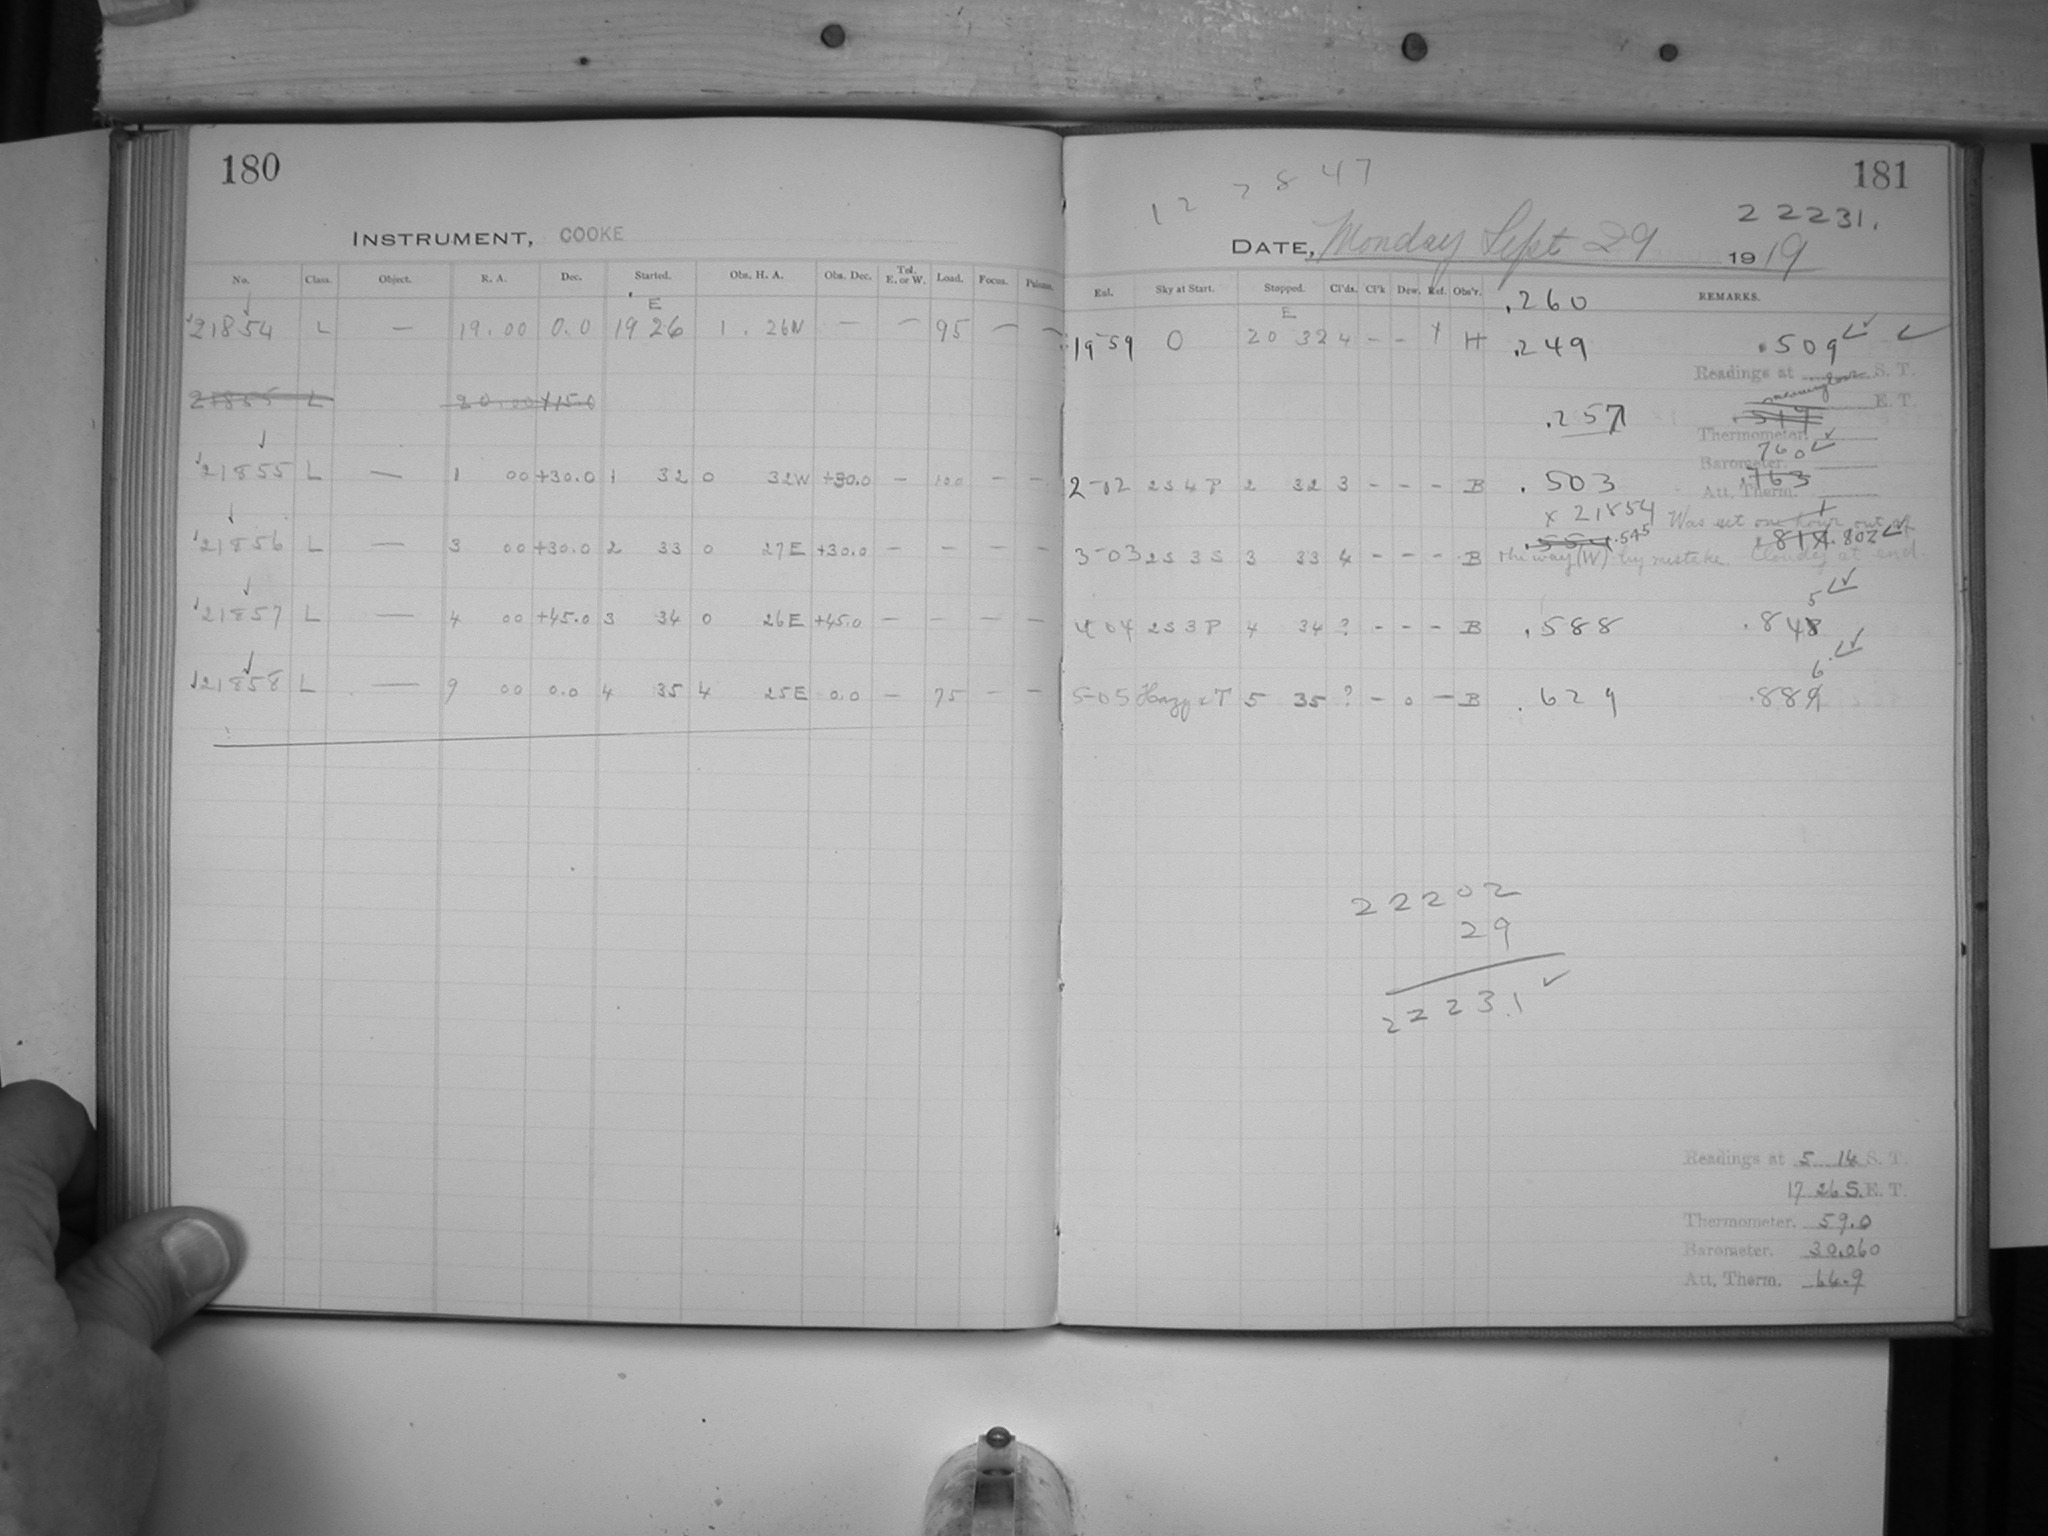 180
INSTRUMENT, COOKE
No. Class. Object. R. A. Dec. Started. Obs. H. A. Obs. Dec. Tel. E. or W. Load. Focus.
E
21854 L — 19.00 0.0 19 26 1. 26W — — 95 — —
21855 L 20.00 +15.0
21855 L — 1 00 +30.0 1 32 0 32W +30.0 — 100 — —
21856 L — 3 00 +30.0 2 33 0 27E +30.0 — — — —
21857 L — 4 00 +45.0 3 34 0 26E +45.0 — — — —
21858 L — 9 00 0.0 4 35 4 25E 0.0 — 75 — —
181
12 7 8 47
22231.
DATE, Monday Sept 29 1919
Eql. Sky at Start. Stopped. Cl'ds. Cl'k Dew. Ref. Obs'r. .260 REMARKS.
E
19-59 0 20 32 4 - - Y H .249 .509
Readings at S. T.
E. T.
.257 .519
Thermometer.
760
Barometer.
2-02 2S4P 2 32 3 - - - B .503 .763
Att. Therm.
x 21854 Was set one hour out of
.545 .802
3-03 2S3S 3 33 4 - - - B the way (W) by mistake. Cloudy at end.
5
4 04 2S3P 4 34 ? - - - B .588 .848
6
5-05 Hazy &T 5 35 ? - 0 - B .629 .889
22202
29
22231
Readings at 5 14 S. T.
17 26 S.E. T.
Thermometer. 59.0
Barometer. 30.060
Att. Therm. 64.9